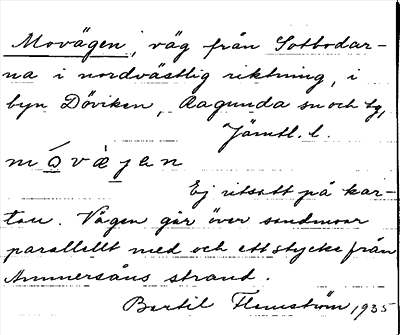 Movägen, väg från Sotbodar-
na i nordvästlig riktning, i
byn Döviken, Ragunda sn och tg,
Jämtl. l.
mo̱vä̀jen
Ej utsatt på kar-
tan. Vägen går över sandmoar
parallellt med och ett stycke från
Ammeråns strand.
Bertil Flemström, 1935